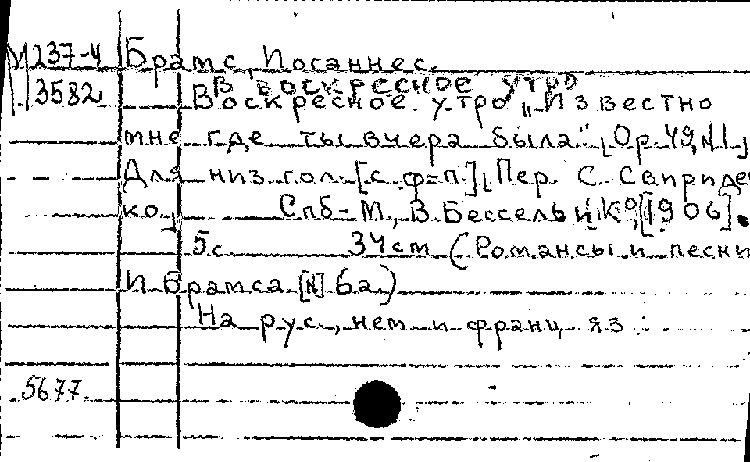 М 237-4 Брамс, Иоганнес.
В воскресное утро
3582 Воскресное утро „Известно
мне где ты вчера была" [Op. 49, N1]
Для низ. гол. [с ф-п.] Пер. С. Свириден
ко] Спб-М., В. Бессель и К°, [1906].
5с. 34 см (Романсы и песни
И Брамса [N] 6а)
На рус., нем и франц яз.
5677